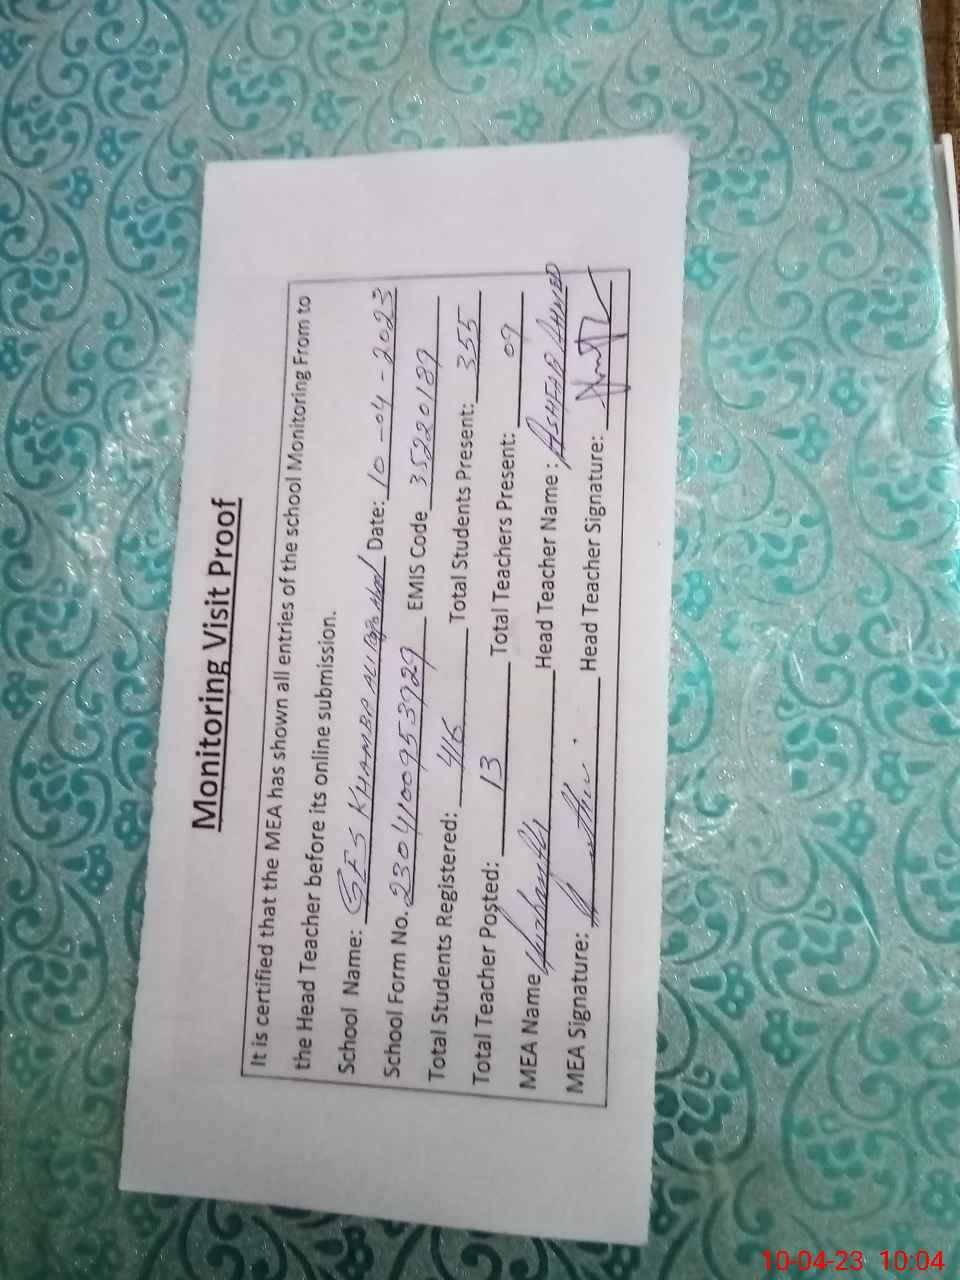 Monitoring Visit Proof
It is certified that the MEA has shown all entries of the school Monitoring From to
the Head Teacher before its online submission.
School Name: GES KHAMBA Date: 10-04-2023
School Form No. 2304100953929 EMIS Code 35220189
Total Students Registered: 416 Total Students Present: 355
Total Teacher Posted: 13 Total Teachers Present: 09
MEA Name Head Teacher Name:
MEA Signature: Head Teacher Signature:
10-04-23 10:04